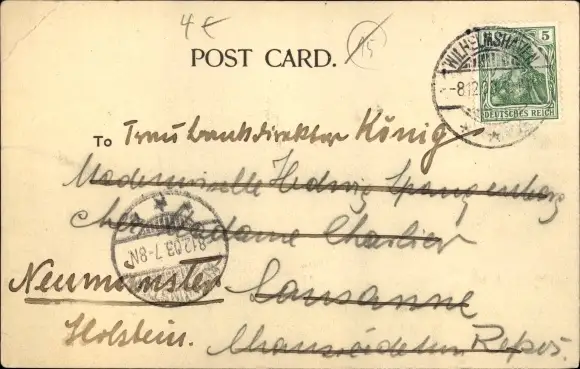 4 €
POST CARD.
15
WILHELMSHAVEN
8.12.03
5
DEUTSCHES REICH
To Frau Bankdirektor König
Mademoiselle Hedwig Spangenberg
chez Madame Charlier
8.12.03.7-8N
Neumünster Lausanne
Holstein. Repos.